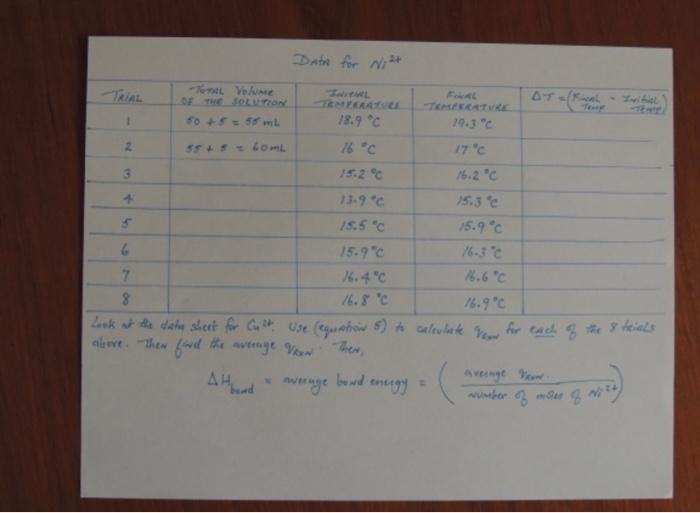 Data for Ni²⁺
TRIAL TOTAL VOLUME OF THE SOLUTION INITIAL TEMPERATURE FINAL TEMPERATURE ΔT = (Final Temp - Initial Temp)
1 50 + 5 = 55 mL 18.9 °C 19.3 °C
2 55 + 5 = 60 mL 16 °C 17 °C
3 15.2 °C 16.2 °C
4 13.9 °C 15.3 °C
5 15.5 °C 15.9 °C
6 15.9 °C 16.3 °C
7 16.4 °C 16.6 °C
8 16.8 °C 16.9 °C
Look at the data sheet for Cu²⁺. Use (equation 5) to calculate qRXN for each of the 8 trials
above. Then find the average qRXN. Then,
ΔHbond = average bond energy = (average qRXN. / number of moles of Ni²⁺)